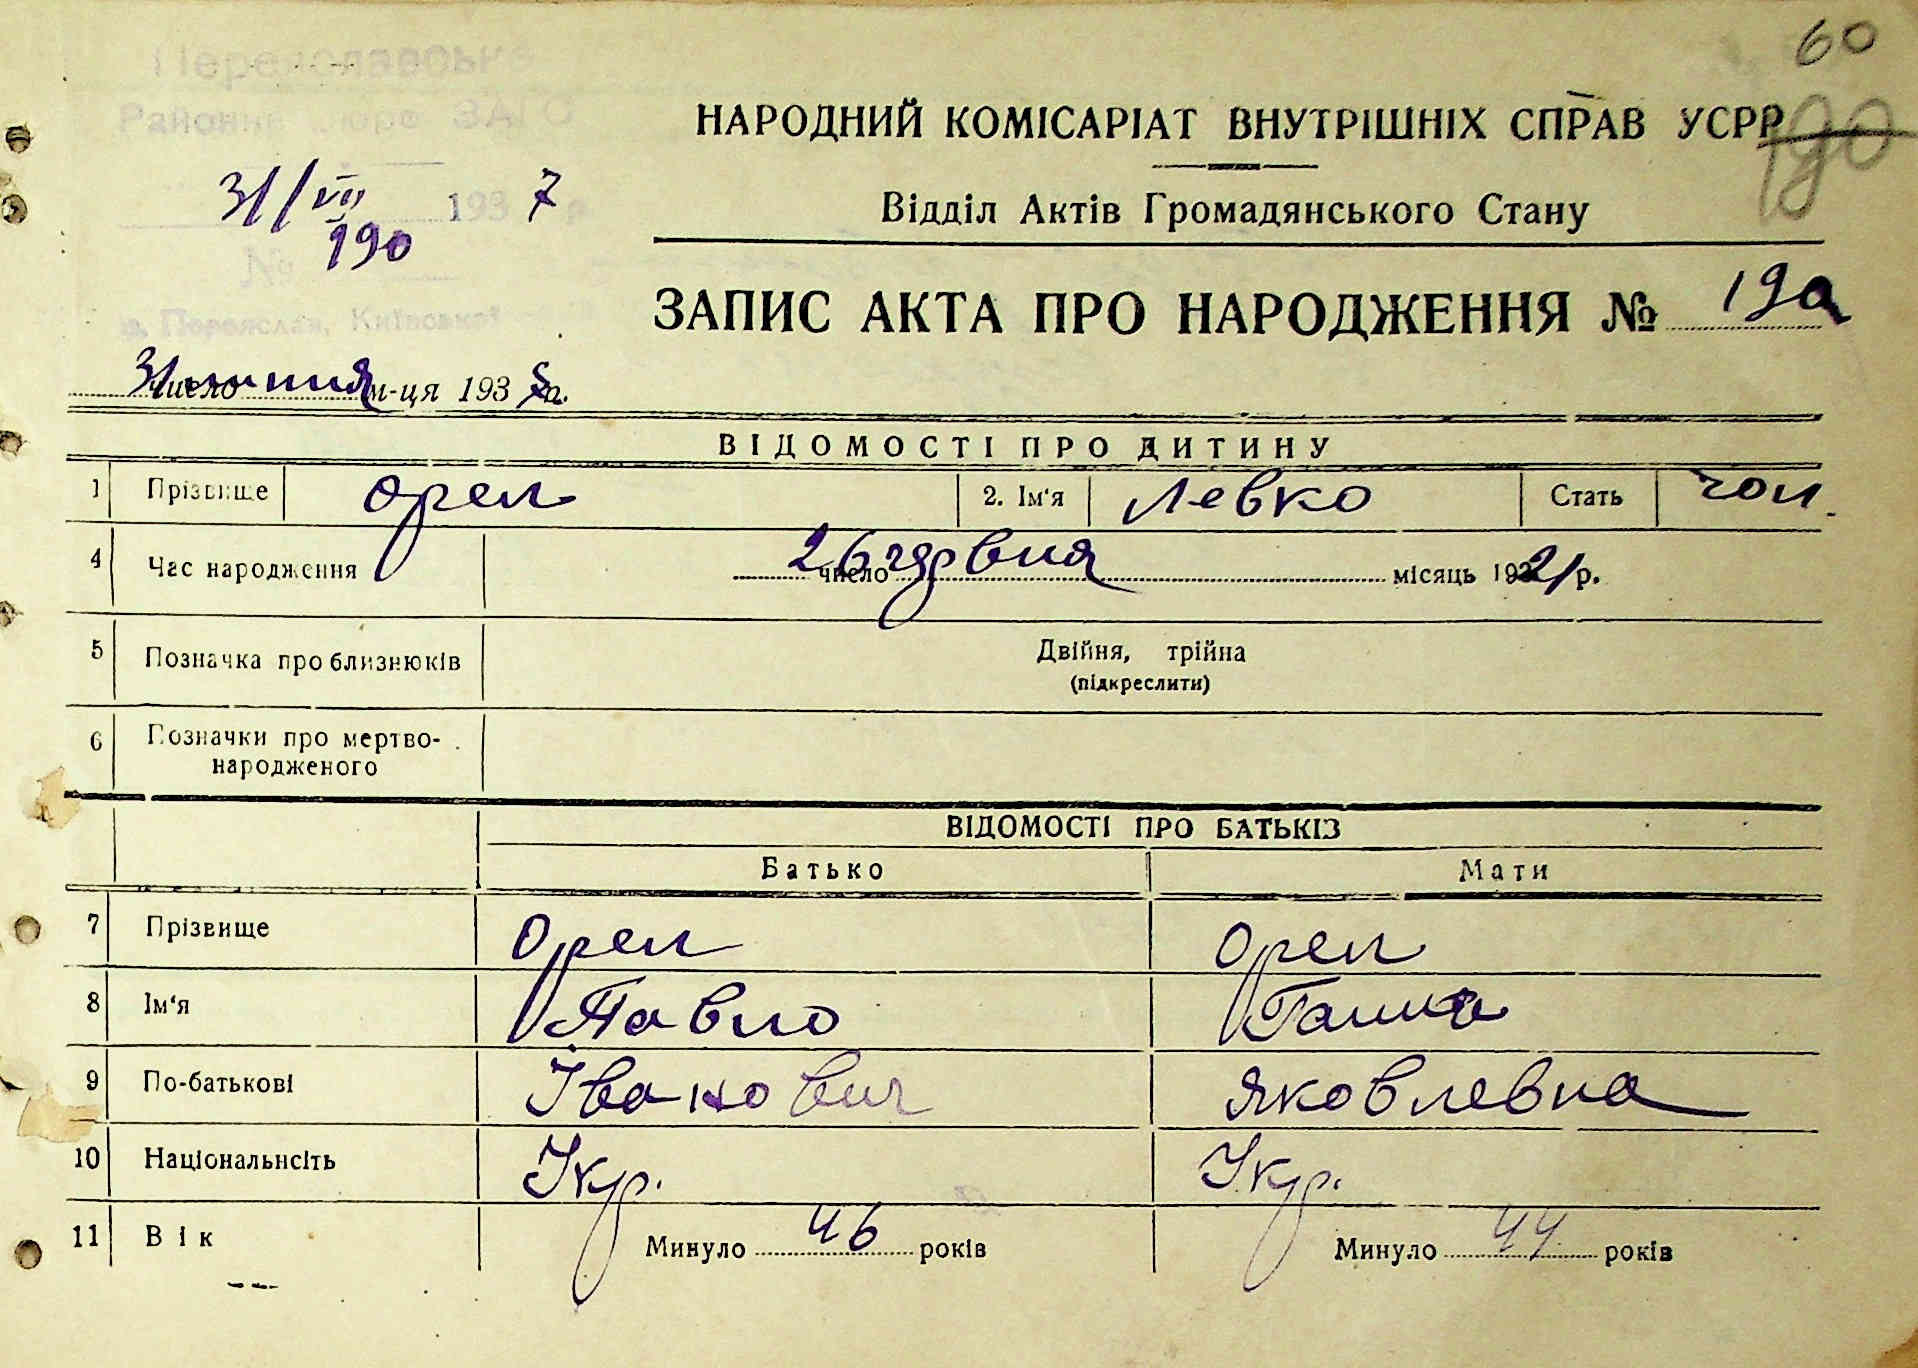 60
Переяславське
Районне бюро ЗАГС
НАРОДНИЙ КОМІСАРІАТ ВНУТРІШНІХ СПРАВ УСРР
190
31/VII 1937 р.
Відділ Актів Громадянського Стану
№ 190
м. Переяслав, Київської
ЗАПИС АКТА ПРО НАРОДЖЕННЯ № 190
31 число липня м-ця 1937 р.
ВІДОМОСТІ ПРО ДИТИНУ
1 Прізвище Орел 2. Ім'я Левко Стать чол.
4 Час народження 26 число червня місяць 1921 р.
5 Позначка про близнюків Двійня, трійна
(підкреслити)
6 Позначки про мертво-
народженого
ВІДОМОСТІ ПРО БАТЬКІВ
Батько Мати
7 Прізвище Орел Орел
8 Ім'я Павло Ганна
9 По-батькові Іванович Яковлевна
10 Національнсіть Укр. Укр.
11 Вік Минуло 46 років Минуло 44 років